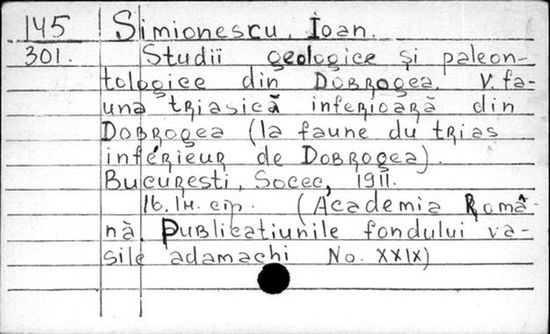 145 Simionescu, Ioan.
301. Studii geologice și paleon-
tologice din Dobrogea. V. fa-
una triasică inferioară din
Dobrogea (la faune du trias
inférieur de Dobrogea).
București, Socec, 1911.
16. (Academia Româ-
nă. Publicatiunile fondului va-
sile adamachi No. XXIX)